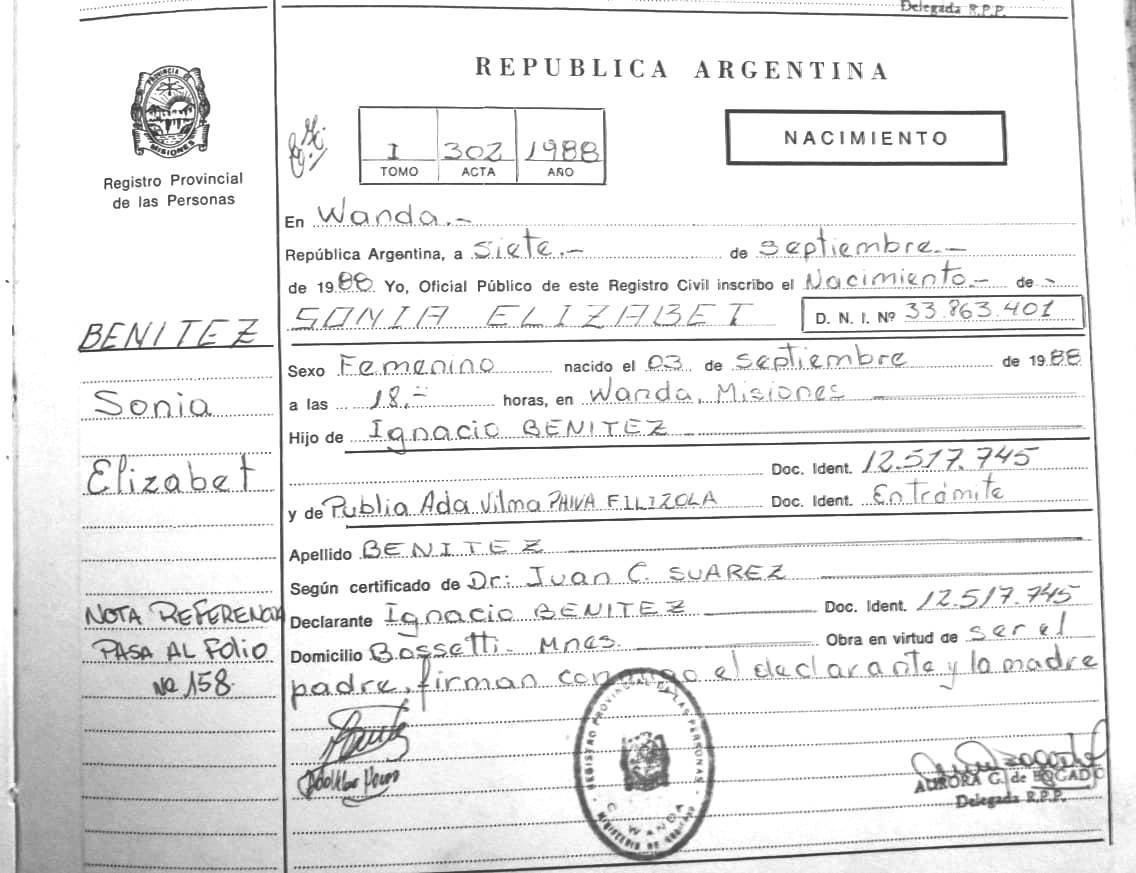 Delegada R.P.P.
PROVINCIA DE MISIONES
Registro Provincial
de las Personas
REPUBLICA ARGENTINA
I 302 1988
TOMO ACTA AÑO
NACIMIENTO
En Wanda.-
República Argentina, a siete.- de septiembre.-
de 1988 Yo, Oficial Público de este Registro Civil inscribo el Nacimiento.- de -
BENITEZ
SONIA ELIZABET D. N. I. Nº 33.863.401
Sexo Femenino nacido el 03 de septiembre de 1988
Sonia
a las 18.- horas, en Wanda, Misiones
Hijo de Ignacio BENITEZ
Elizabet
Doc. Ident. 12.517.745
y de Publia Ada Vilma PAIVA FILIZOLA Doc. Ident. En trámite
Apellido BENITEZ
Según certificado de Dr: Juan C. SUAREZ
NOTA REFERENCIA
PASA AL FOLIO
Nº 158.
Declarante Ignacio BENITEZ Doc. Ident. 12.517.745
Domicilio Bossetti- Mnes. Obra en virtud de ser el
padre, firman conmigo el declarante y la madre
REGISTRO PROVINCIAL DE LAS PERSONAS
WANDA
AURORA G. de BOGADO
Delegada R.P.P.